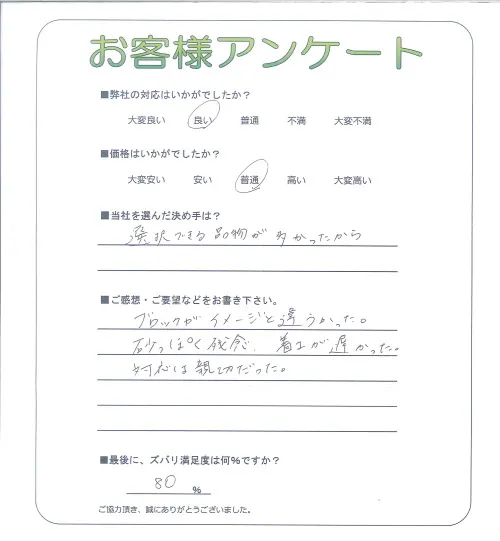 お客様アンケート
■弊社の対応はいかがでしたか？
大変良い 良い 普通 不満 大変不満
■価格はいかがでしたか？
大変安い 安い 普通 高い 大変高い
■当社を選んだ決め手は？
選択できる品物が多かったから
■ご感想・ご要望などをお書き下さい。
ブロックがイメージと違うかった。
砂っぽく残念、着工が遅かった。
対応は親切だった。
■最後に、ズバリ満足度は何％ですか？
80 %
ご協力頂き、誠にありがとうございました。